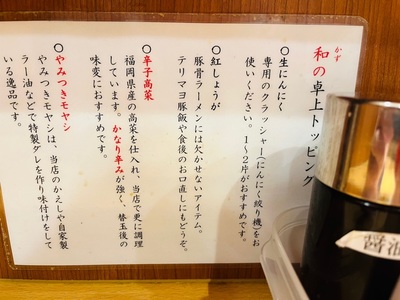 かず
和の卓上トッピング
○生にんにく
専用のクラッシャー(にんにく絞り機)をお
使いください。1〜2片がおすすめです。
○紅しょうが
豚骨ラーメンには欠かせないアイテム。
テリマヨ豚飯や食後のお口直しにもどうぞ。
○辛子高菜
福岡県産の高菜を仕入れ、当店で更に調理
しています。かなり辛みが強く、替玉後の
味変におすすめです。
○やみつきモヤシ
やみつきモヤシは、当店のかえしや自家製
ラー油などで特製ダレを作り味付けをして
いる逸品です。
醤油